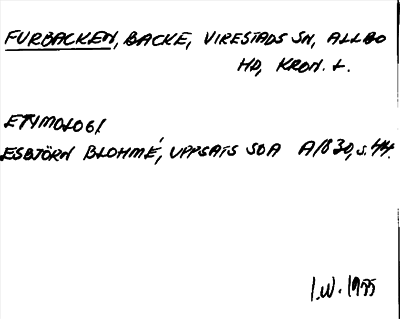 FURBACKEN, BACKE, VIRESTADS SN, ALLBO
HD, KRON. L.
ETYMOLOGI
ESBJÖRN BLOHMÉ, UPPSATS SOA A1830, S. 44.
I.W. 1955